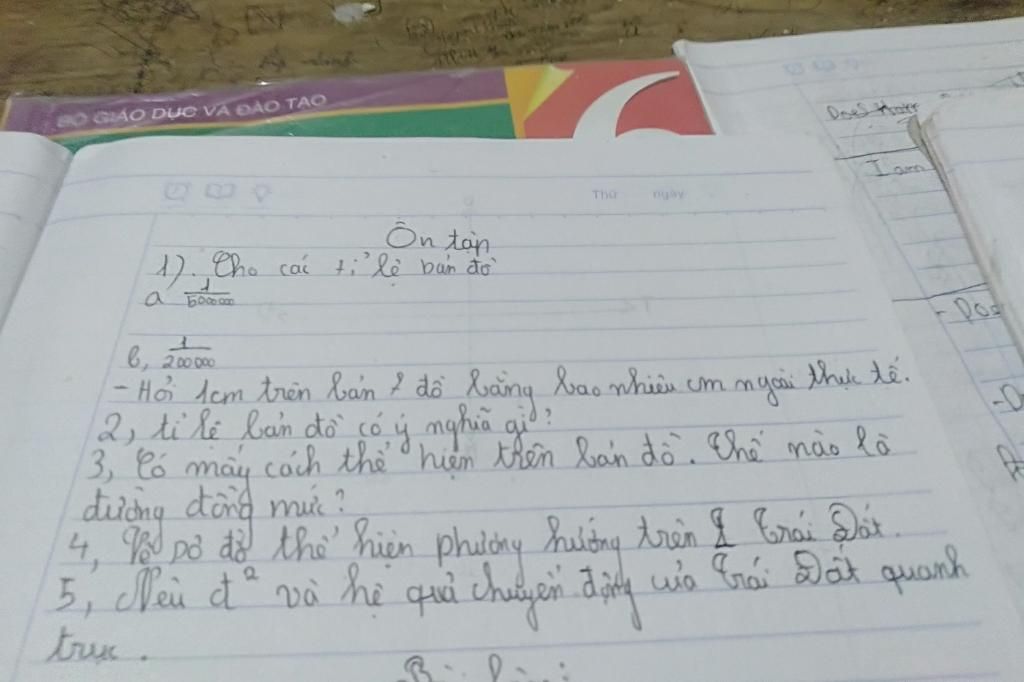 BỘ GIÁO DỤC VÀ ĐÀO TẠO
6
Thứ ngày
Ôn tập
1). Cho các tỉ lệ bản đồ
a 1/5000000
b, 1/200000
- Hỏi 1cm trên bản đồ bằng bao nhiêu cm ngoài thực tế.
2, tỉ lệ bản đồ có ý nghĩa gì?
3, Có mấy cách thể hiện trên bản đồ. Thế nào là
đường đồng mức?
4, Vẽ sơ đồ thể hiện phương hướng trên Trái Đất.
5, Nêu đ² và hệ quả chuyển động của Trái Đất quanh
trục.
I am